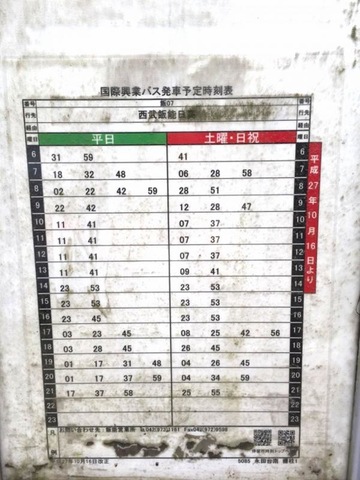 国際興業バス発車予定時刻表
番号 飯07 番号
行先 西武飯能日高 行先
経由 経由
曜日 平日 土曜・日祝 曜日
6 31 59 41 6
7 18 32 48 06 28 58 7
8 02 22 42 59 28 51 8
9 22 42 12 28 47 9
10 11 41 07 37 10
11 11 41 07 37 11
12 11 41 07 37 12
13 11 41 09 41 13
14 23 53 23 53 14
15 23 53 23 53 15
16 23 45 23 53 16
17 03 23 45 08 25 42 56 17
18 03 28 45 26 45 18
19 01 17 31 48 21 48 19
20 01 17 37 59 04 34 59 20
21 17 37 58 25 55 21
22 22
23 23
平成27年10月16日より
凡例
お問い合わせ先
飯能営業所
10月16日改正
5085 永田台西